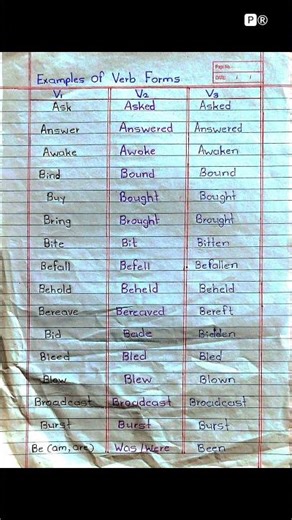 P®
Page No.
Date: / /
Examples Of Verb Forms
V1 V2 V3
Ask Asked Asked
Answer Answered Answered
Awake Awoke Awaken
Bind Bound Bound
Buy Bought Bought
Bring Brought Brought
Bite Bit Bitten
Befall Befell Befallen
Behold Beheld Beheld
Bereave Bereaved Bereft
Bid Bade Bidden
Bleed Bled Bled
Blow Blew Blown
Broadcast Broadcast Broadcast
Burst Burst Burst
Be (am, are) Was/Were Been